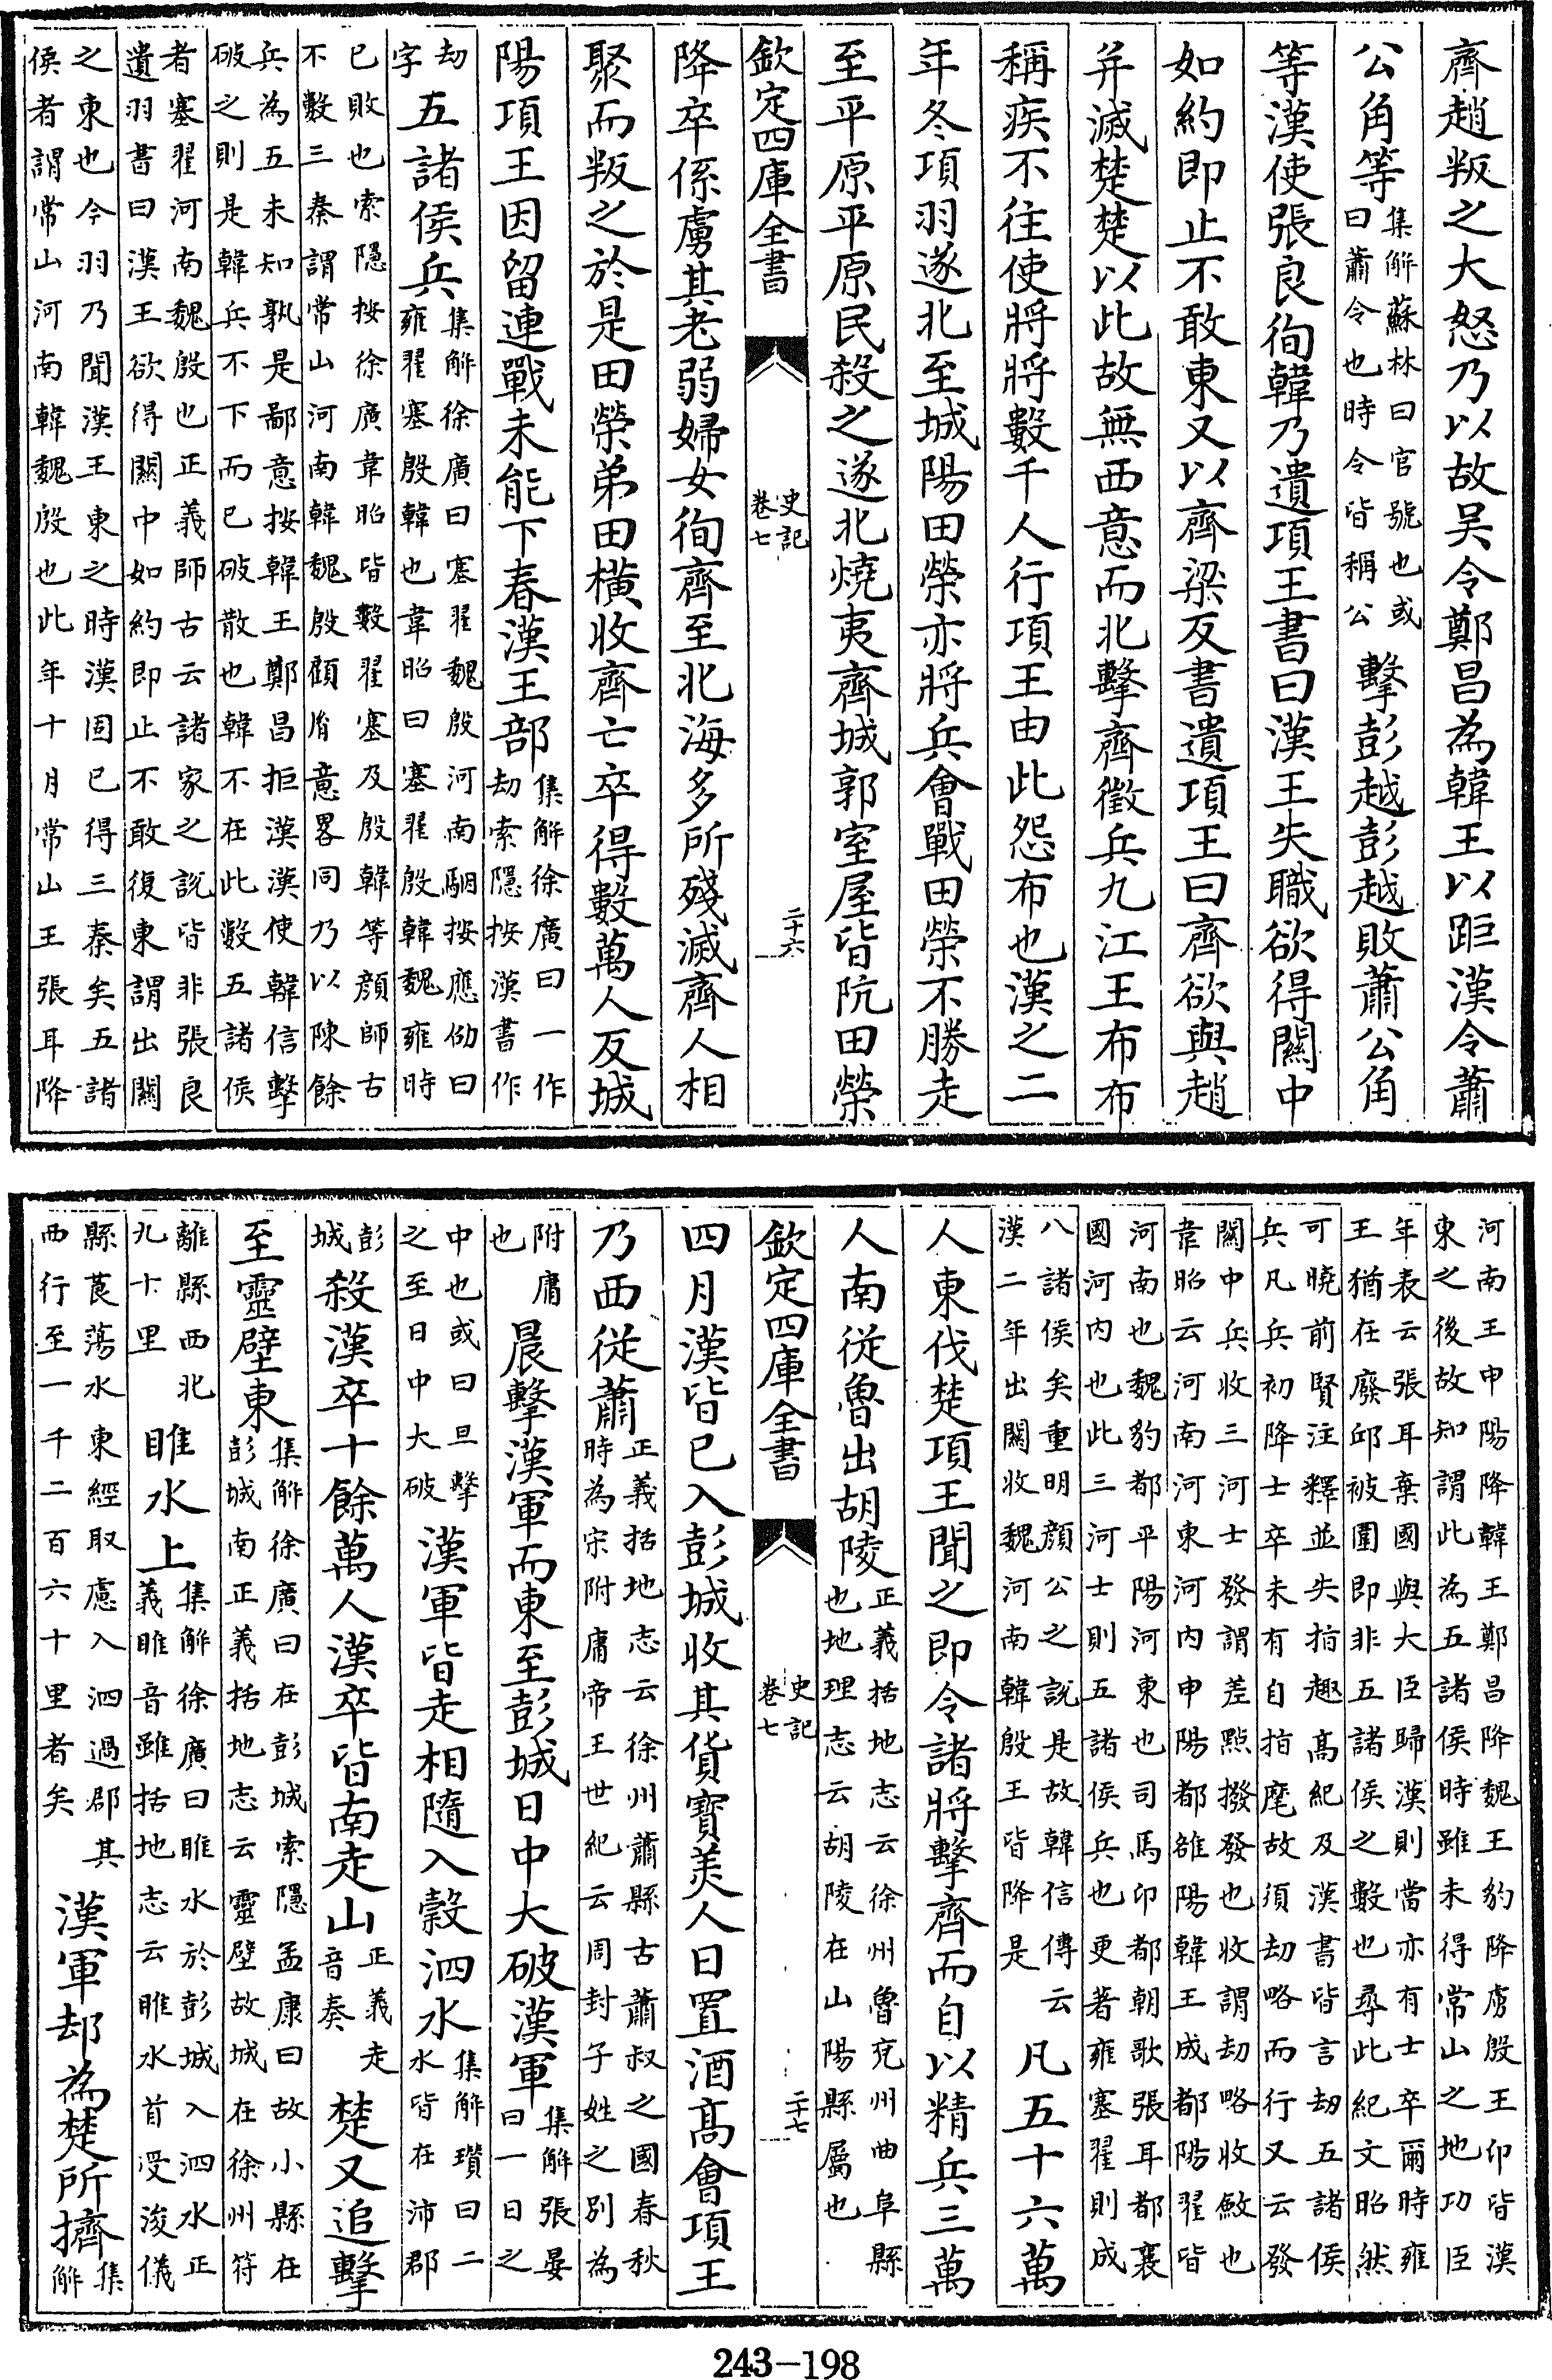 齊趙叛之大怒乃以故吴令鄭昌為韓王以距漢令蕭
公角等集解蘇林曰官號也或曰蕭令也時令皆稱公擊彭越彭越敗蕭公角
等漢使張良徇韓乃遺項王書曰漢王失職欲得關中
如約即止不敢東又以齊梁反書遺項王曰齊欲與趙
并滅楚楚以此故無西意而北擊齊徵兵九江王布布
稱疾不往使將將數千人行項王由此怨布也漢之二
年冬項羽遂北至城陽田榮亦將兵會戰田榮不勝走
至平原平原民殺之遂北燒夷齊城郭室屋皆阬田榮
欽定四庫全書 史記卷七 二十六
降卒係虜其老弱婦女徇齊至北海多所殘滅齊人相
聚而叛之於是田榮弟田橫收齊亡卒得數萬人反城
陽項王因留連戰未能下春漢王部集解徐廣曰一作劫索隱按漢書作
劫字五諸侯兵集解徐廣曰塞翟魏殷河南駰按應劭曰雍翟塞殷韓也韋昭曰塞翟殷韓魏雍時
已敗也索隱按徐廣韋昭皆數翟塞及殷韓等顔師古
不數三秦謂常山河南韓魏殷顧胤意畧同乃以陳餘
兵為五未知孰是鄙意按韓王鄭昌拒漢漢使韓信擊
破之則是韓兵不下而已破散也韓不在此數五諸侯
者塞翟河南魏殷也正義師古云諸家之說皆非張良
遺羽書曰漢王欲得關中如約即止不敢復東謂出關
之東也今羽乃聞漢王東之時漢固已得三秦矣五諸
侯者謂常山河南韓魏殷也此年十月常山王張耳降
河南王申陽降韓王鄭昌降魏王豹降虜殷王卬皆漢
東之後故知謂此為五諸侯時雖未得常山之地功臣
年表云張耳棄國與大臣歸漢則當亦有士卒爾時雍
王猶在廢邱被圍即非五諸侯之數也尋此紀文昭然
可曉前賢注釋並失指趣髙紀及漢書皆言劫五諸侯
兵凡兵初降士卒未有自指麾故須劫略而行又云發
關中兵收三河士發謂差點撥發也收謂劫略收斂也
韋昭云河南河東河内申陽都雒陽韓王成都陽翟皆
河南也魏豹都平陽河東也司馬卬都朝歌張耳都襄
國河内也此三河士則五諸侯兵也更著雍塞翟則成
八諸侯矣重明顔公之說是故韓信傳云漢二年出關收魏河南韓殷王皆降是凡五十六萬
人東伐楚項王聞之即令諸將擊齊而自以精兵三萬
人南從魯出胡陵正義括地志云徐州魯兖州曲阜縣也地理志云胡陵在山陽縣屬也
欽定四庫全書 史記卷七 二十七
四月漢皆已入彭城收其貨寶美人日置酒髙會項王
乃西從蕭正義括地志云徐州蕭縣古蕭叔之國春秋時為宋附庸帝王世紀云周封子姓之別為
附庸也晨擊漢軍而東至彭城日中大破漢軍集解張晏曰一日之
中也或曰旦擊之至日中大破漢軍皆走相隨入穀泗水集解瓚曰二水皆在沛郡
彭城殺漢卒十餘萬人漢卒皆南走山正義走音奏楚又追擊
至靈壁東集解徐廣曰在彭城索隱孟康曰故小縣在彭城南正義括地志云靈壁故城在徐州符
離縣西北九十里睢水上集解徐廣曰睢水於彭城入泗水正義睢音雖括地志云睢水首受浚儀
縣莨蕩水東經取慮入泗過郡其西行至一千二百六十里者矣漢軍却為楚所擠集解
243-198